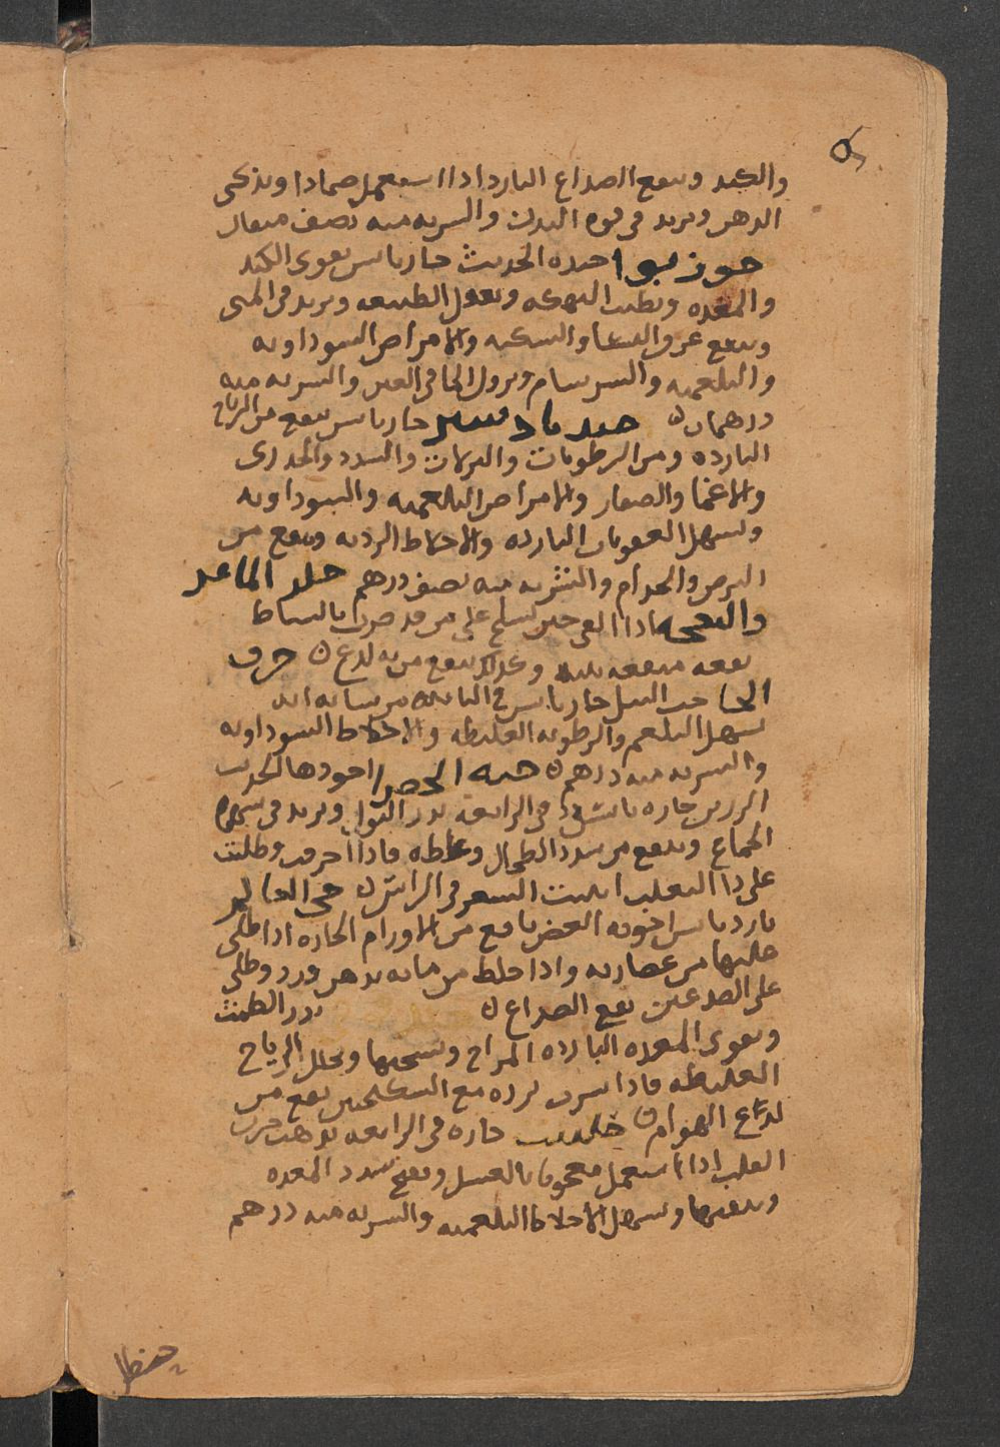 والكبد وينفع الصداع البارد اذا استعمل ضمادا ويذكى
الذهن ويزيد فى قوه البدن والشربه منه نصف مثقال
جوز بوا جيده الحديث حار يابس يقوى الكبد
والمعده ويطيب النهكه ويعقل الطبيعه ويزيد فى المنى
وينفع عرق النسا والسكته والامراض السوداويه
والبلغميه والسرسام ونزول الما فى العين والشربه منه
درهمان جندبادستر حار يابس ينفع من الرياح
البارده ومن الرطوبات والنزلات والسدد والخدرى
والاغما والامراض البلغميه والسوداويه
ويسهل العفونات البارده والاخلاط الرديه وينفع من
البرص والجذام والشربه منه نصف درهم جلد الماعز
والنعجه اذا القى حين يسلخ على من قد ضرب بالسياط
نفعه منفعه بينه وكذلك ينفع من به لدغ
حب النيل حار يابس فى الثالثه من شانه انه
يسهل البلغم والرطوبه الغليظه والاخلاط السوداويه
والشربه منه درهم حبه الخضرا اجودها الحديث
الرزين حاره يابسه فى الرابعه تدر البول ويزيد فى شهوه
الجماع وينفع من سدد الطحال وغلظه فاذا احرقت وطليت
على دا الثعلب انبتت الشعر فى الراس حى العالم
بارد يابس اجوده الغض نافع من الاورام الحاره اذا طلى
عليها من عصارته واذا خلط من مايه بدهن ورد وطلى
على الصدغين نفع الصداع يدر الطمث
ويقوى المعده البارده المزاج ويسخنها ويحلل الرياح
الغليظه فاذا شرب بزره مع السكنجبين نفع من
لدغ الهوام حاره فى الرابعه يذهب حرب
القلب اذا استعمل معجونا بالعسل ويفتح سدد المعده
وينقيها ويسهل الاخلاط البلغميه والشربه منه درهم
حنظل